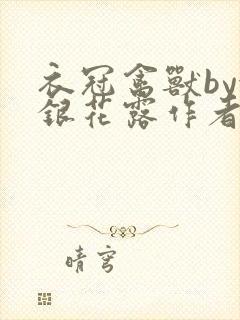 衣冠禽獸by
銀花露作者
晴穹